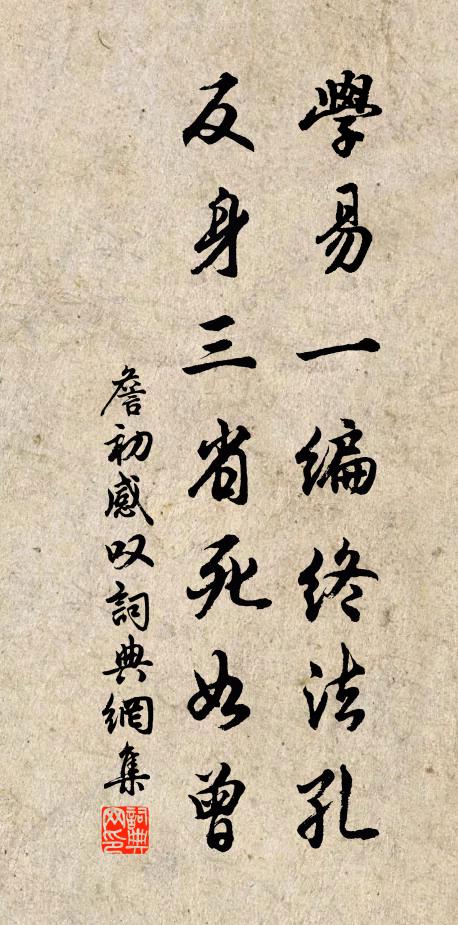 學易一編終法孔
反身三省死如曾
詹初感叹詞典網集
詞典
网印